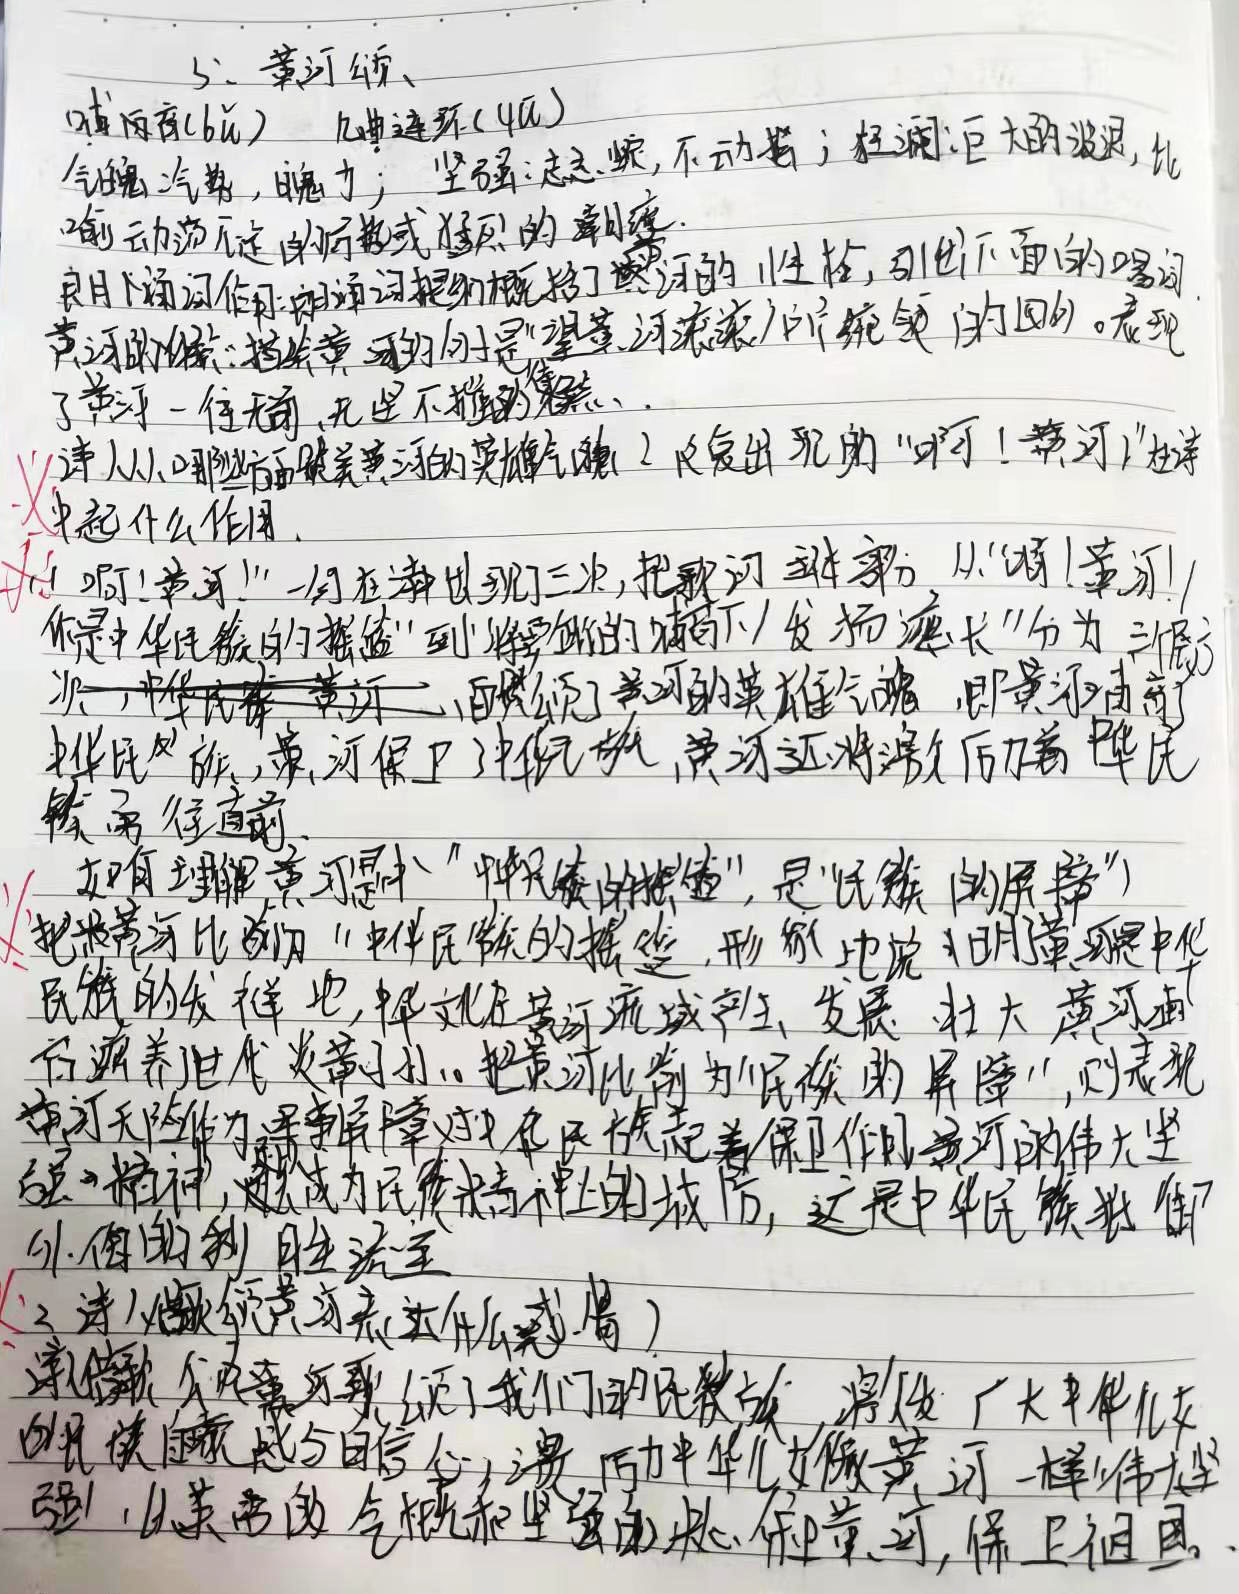 5、黄河颂、
哺两度(bǔ) 九曲连环(qū)
气魄:气势,魄力; 坚强:志志坚,不动摇;狂澜:巨大的波浪,比
喻动荡不定的局势或猛烈的潮流.
朗诵词作用:朗诵词提纲概括了黄河的性格,引出下面的唱词.
黄河的:描绘黄河的句子是"望黄河滚滚"统领的回句。表现
了黄河一往无前、无坚不摧的
诗人从哪些方面赞美黄河的英雄气魄?反复出现的"啊!黄河!"在诗
中起什么作用.
"啊!黄河!"一句在诗中出现了三次,把歌词主体部分从"啊!黄河!/
你是中华民族的摇篮"到"将要在你的哺育下/发扬滋长"分为三个层
次,赞颂了黄河的英雄气魄,即黄河哺育了
中华民族,黄河保卫了中华民族,黄河还将激励着中华民
族勇往直前.
如何理解黄河是"中华民族的摇篮",是"民族的屏障"
把黄河比喻为"中华民族的摇篮,形象地说明黄河是中华
民族的发祥地,中华文化在黄河流域产生、发展、壮大 黄河
滋养了世代炎黄子孙。把黄河比喻为"民族的屏障",则表现
黄河天险作为军事屏障对中华民族起着保卫作用 黄河的伟大坚
强"精神,成为民族精神上的城防,这是中华民族抵御
外侮的
2 诗人歌颂黄河表达什么感情?
歌颂黄河歌颂了我们的民族,激发广大中华儿女
的民族自豪感与自信心,激励中华儿女像黄河一样"伟大坚
强",以英勇的气概和坚强的决心保卫黄河,保卫祖国。